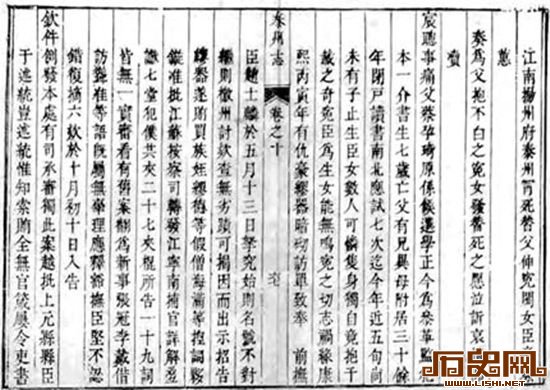 江南揚州府泰州冒死替父伸冤閨女臣
蕙
奏爲父抱不白之冤女發替死之愚泣訴哀
宸聽事痛父蔡孕琦原係候選學正今爲叅革監
本一介書生七歲亡父有兄異母附居三十餘
年閉戶讀書南北應試七次迄今年近五旬尚
未有子止生臣女數人可憐隻身獨自竟抱千
載之奇冤臣爲生女能無鳴冤之切志禍緣康
熙丙寅年有仇豪繆器暗砌訪單致奉 前撫
泰州志 卷之十
臣趙士麟於五月十三日拏究始則名號不對
繼則檄州計欵查無劣蹟可揭因而出示招告
繆器遂賄買族姪穎德等假僧海 等揑詞夥
准批江蘇按察司轉發江寧南捕官詳解
七堂犯僕共夾二十七夾棍所告一十九詞
皆無一實審看有舊案翻爲新事張冠李戴借
訪 准等語旣屬無辜理應釋 撫臣堅不認
錯復摘六欵於十月初十日入告
欽件倒發本處有司承審獨此案越批上元縣縣臣
于述統豈述統惟知索賄全無官箴屢令吏書
历史网
WWW.LISHI.NET